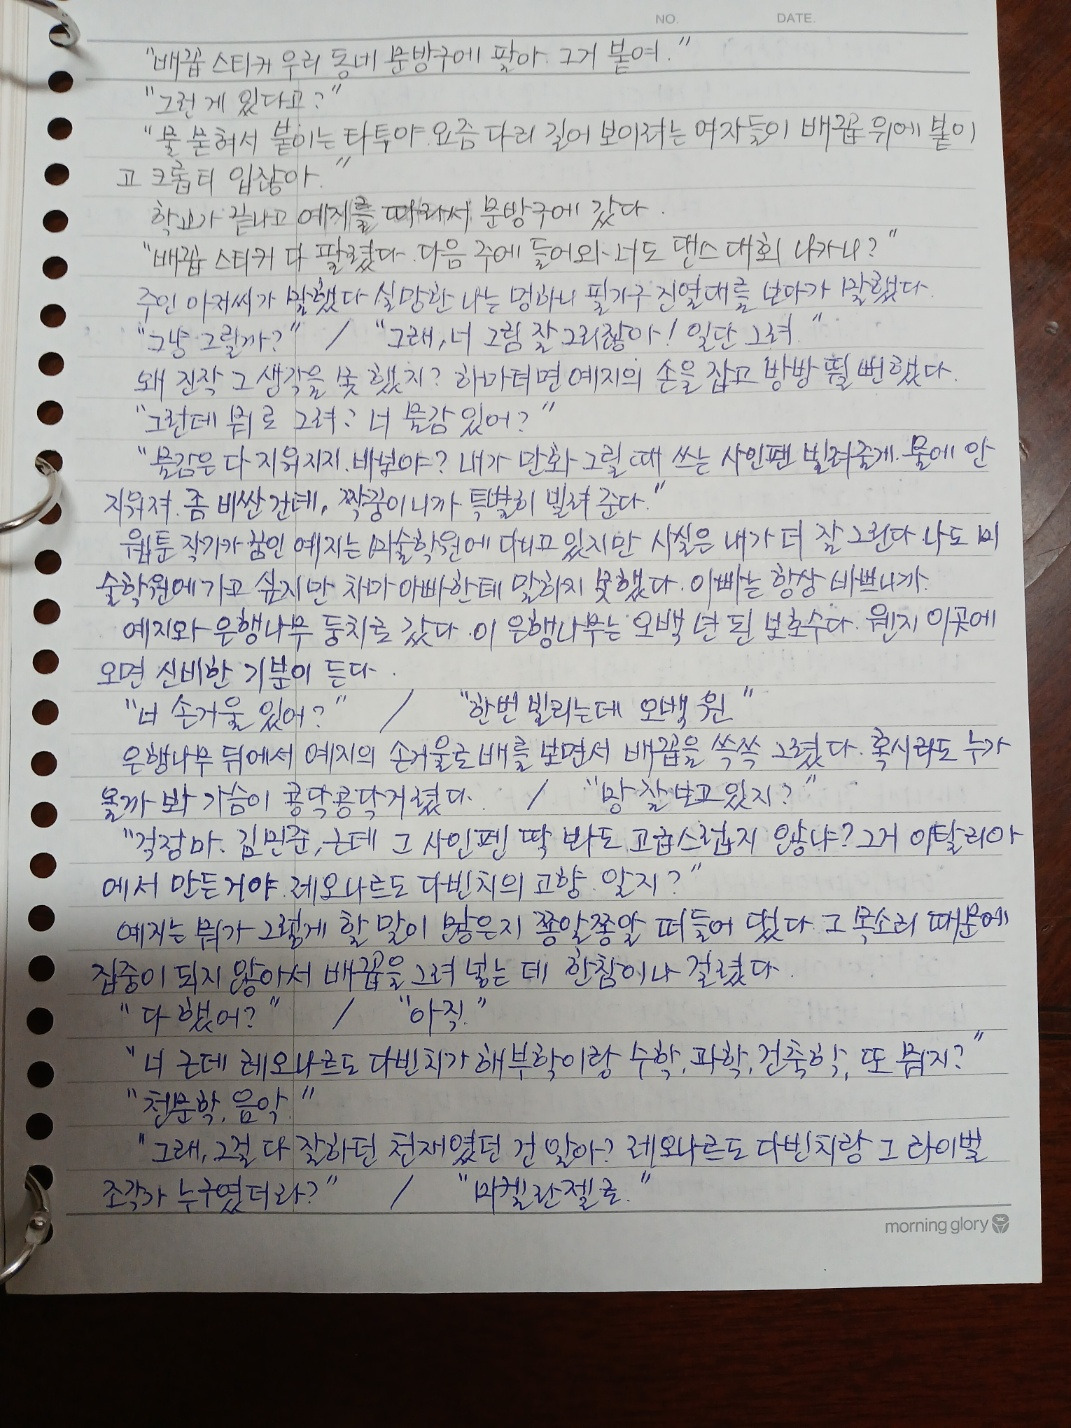 NO. DATE.
"배꼽 스티커 우리 동네 문방구에 팔아. 그거 붙여."
"그런 게 있다고?"
"물 묻혀서 붙이는 타투야. 요즘 다리 길어 보이려는 여자들이 배꼽 위에 붙이
고 크롭티 입잖아."
학교가 끝나고 예지를 따라서 문방구에 갔다.
"배꼽 스티커 다 팔렸다. 다음 주에 들어와. 너도 댄스 대회 나가니?"
주인 아저씨가 말했다. 실망한 나는 멍하니 필기구 진열대를 보다가 말했다.
"그냥 그릴까?" / "그래, 너 그림 잘 그리잖아! 일단 그려."
왜 진작 그 생각을 못 했지? 하마터면 예지의 손을 잡고 방방 뛸 뻔했다.
"그런데 뭐로 그려? 너 물감 있어?"
"물감은 다 지워지지. 바보야? 내가 만화 그릴 때 쓰는 사인펜 빌려줄게. 물에 안
지워져. 좀 비싼 건데, 짝꿍이니까 특별히 빌려 준다."
웹툰 작가가 꿈인 예지는 미술학원에 다니고 있지만 사실은 내가 더 잘 그린다. 나도 미
술학원에 가고 싶지만 차마 아빠한테 말하지 못했다. 아빠는 항상 바쁘니까.
예지와 은행나무 둥치로 갔다. 이 은행나무는 오백 년 된 보호수다. 웬지 이곳에
오면 신비한 기분이 든다.
"너 손거울 있어?" / "한번 빌리는데 오백 원."
은행나무 뒤에서 예지의 손거울로 배를 보면서 배꼽을 쓱쓱 그렸다. 혹시라도 누가
올까 봐 가슴이 콩닥콩닥거렸다. / "망 잘 보고 있지?"
"걱정 마. 김민준, 근데 그 사인펜 딱 봐도 고급스럽지 않냐? 그거 이탈리아
에서 만든거야. 레오나르도 다빈치의 고향. 알지?"
예지는 뭐가 그렇게 할 말이 많은지 쫑알쫑알 떠들어 댔다. 그 목소리 때문에
집중이 되지 않아서 배꼽을 그려 넣는 데 한참이나 걸렸다.
"다 했어?" / "아직."
"너 근데 레오나르도 다빈치가 해부학이랑 수학, 과학, 건축학, 또 뭐지?"
"천문학, 음악."
"그래, 그걸 다 잘하던 천재였던 건 알아? 레오나르도 다빈치랑 그 라이벌
조각가 누구였더라?" / "미켈란젤로."
morning glory